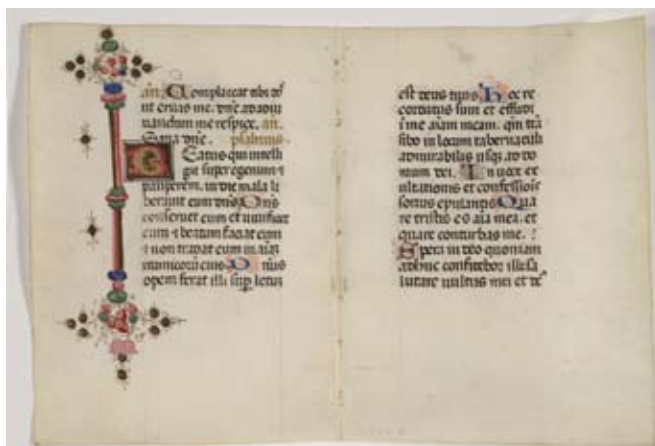 an. Complaceat tibi
ut eruas me. dn̄e ad adiu
uandum me respice. an.
Sana dn̄e. psalmus.
Beatus qui intelli
git super egenum ⁊
pauperem. in die mala li
berauit eum dn̄s Dn̄s
conseruet eum et uiuificet
eum ⁊ beatum faciat eum
⁊ non tradat eum in
inimicorū eius Dn̄us
opem ferat illi sup̄ letuz
est deus tuus Hec re
cordatus sum et effudi
ī me aīam meam. qm̄ trā
sibo in locum tabernaculi
admirabilis usqꝫ ad do
mum dei. In uoce ex
ultationis et confessiōis
sonus epulantis Qua
re tristis es aīa mea. et
quare conturbas me.
Spera in deo quoniam
adhuc confitebor illi sa
lutare uultus mei et